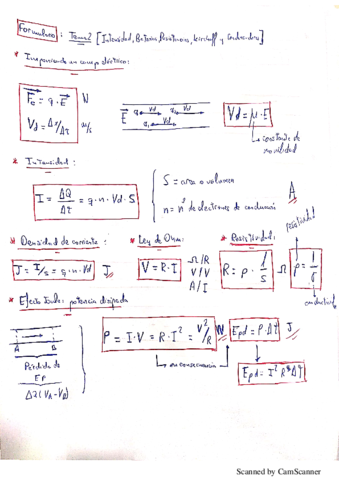 Formulario: Tema 2 [Intensidad, Baterías, Resistencias, Kirchhoff y Condensadores]
* Inmersión en campo eléctrico:
Fe = q · E N
Vd = Δr/Δt m/s
E q Vd
Vd = μ · E
constante de movilidad
* Intensidad:
I = ΔQ/Δt = q · n · Vd · S
S = area o volumen
n = nº de electrones de conducción
A
* Densidad de corriente:
J = I/s = q · n · Vd J
* Ley de Ohm:
V = R · I
Ω / R
V / V
A / I
* Resistividad:
R = ρ · l/s Ω
resistividad
ρ = 1/σ
conductividad
* Efecto Joule: potencia disipada
A B
Pérdida de EP
ΔQ (VA - VB)
P = I · V = R · I² = V²/R
en consecuencia
Epd = P · Δt J
Epd = I² R * Δt
Scanned by CamScanner